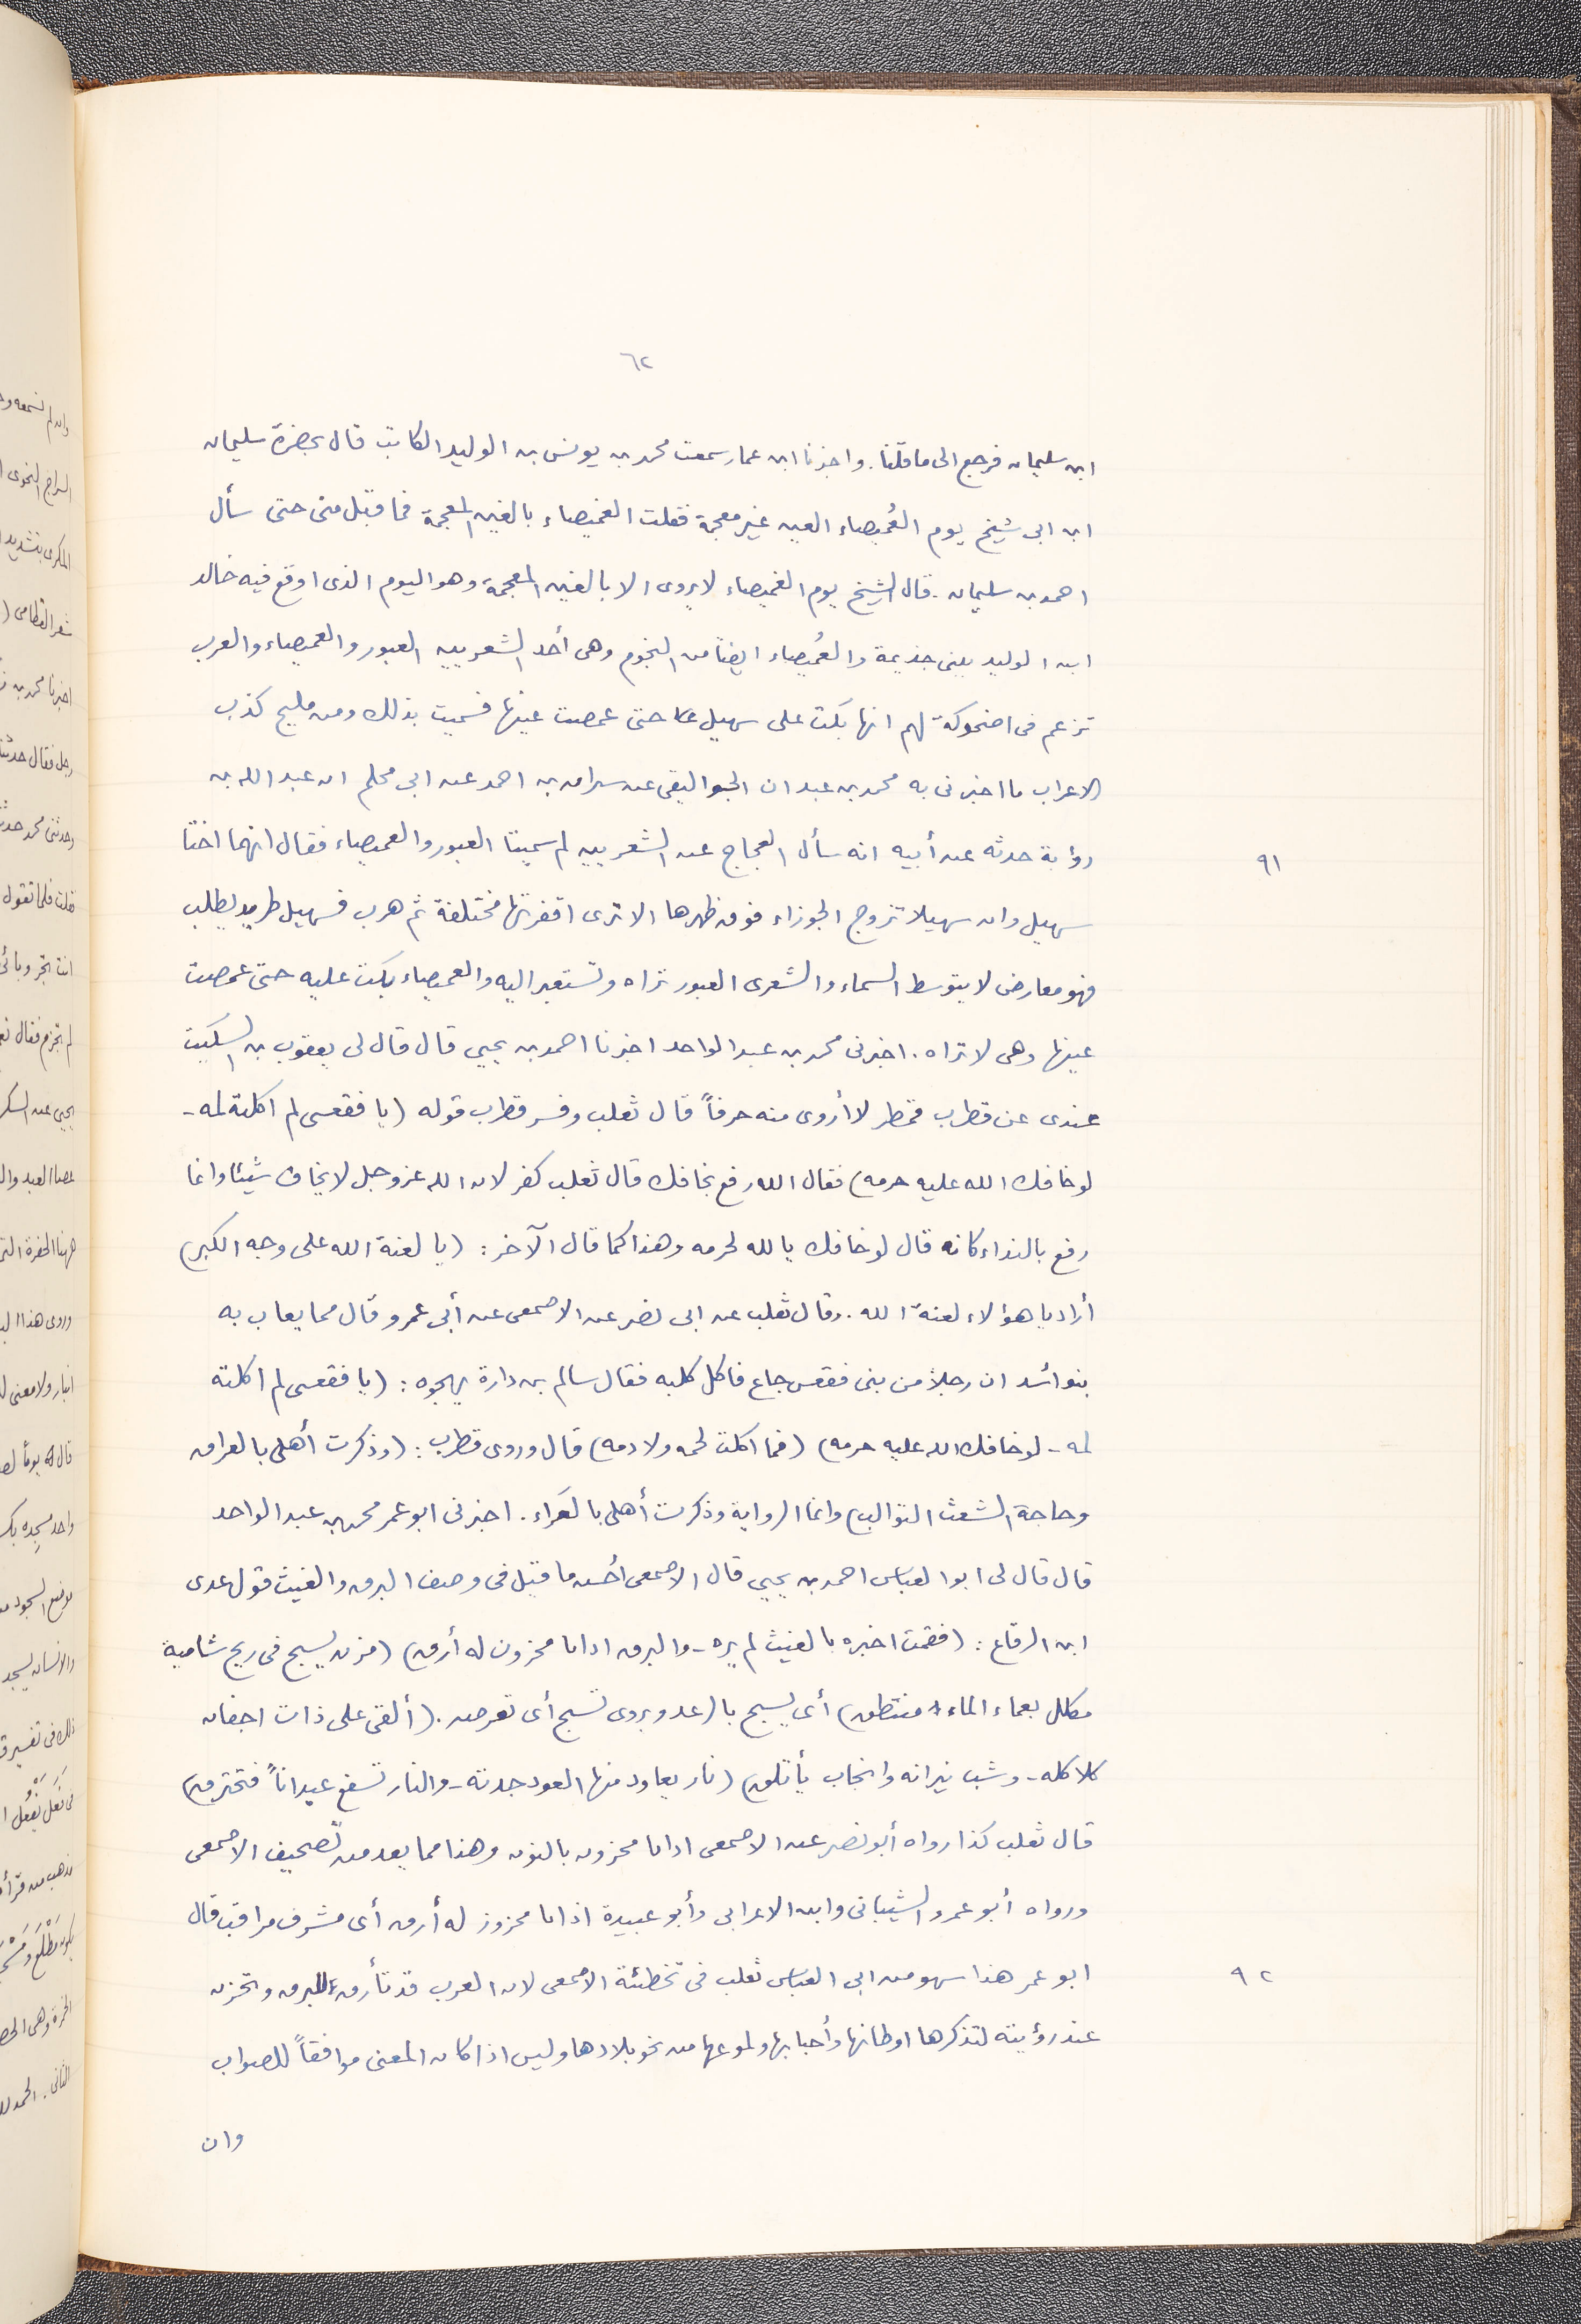 ٦٢
ابن سليمان فرجع الى ما قلنا. واخبرنا ابن عمار سمعت محمد بن يونس بن الوليد الكاتب قال بحضرة سليمان
ابن ابى شيخ يوم العُميصاء العين غير معجمة فقلت الغميصاء بالغين المعجمة فما قبل منى حتى سأل
احمد بن سليمان. قال الشيخ يوم الغميصاء لا يروى الا بالغين المعجمة وهو اليوم الذى اوقع فيه خالد
ابن الوليد ببنى جذيمة والغُميصاء ايضاً من النجوم وهى أحد الشعريين العبور والغميصاء والعرب
تزعم فى اضحوكة لهم انها بكت على سهيل حتى غمصت عينها فسميت بذلك ومن مليح كذب
الاعراب ما اخبرنى به محمد بن عبدان الجواليقى عن سران بن احمد عن ابى محلم ان عبد الله بن
رؤبة حدثه عن أبيه انه سأل العجاج عن الشعريين لم سميتا العبور والغميصاء فقال انهما اختا
٩١
سهيل وان سهيلا تزوج الجوزاء فوق ظهرها الا ترى اقفرتها مختلفة ثم هرب فسهيل طريد يطلب
فهو معارض لا يتوسط السماء والشعرى العبور تراه وتستعبر اليه والغميصاء بكت عليه حتى غمصت
عينها وهى لا تراه. اخبرنى محمد بن عبد الواحد اخبرنا احمد بن يحيى قال قال لى يعقوب بن السكيت
عندى عن قطرب قمطر لا أروى منه حرفاً قال ثعلب وفسر قطرب قوله (يا فقعسى لم اكلته لمه -
لو خافك الله عليه حرمه) فقال الله رفع بخافك قال ثعلب كفر لان الله عز وجل لا يخاف شيئا وانما
رفع بالنداء كانه قال لو خافك يا لله لحرمه وهذا كما قال الآخر: (يا لعنة الله على وجه الكبر)
أراد يا هؤلاء لعنة الله. وقال ثعلب عن ابى نصر عن الاصمعى عن أبى عمرو قال مما يعاب به
بنو أسد ان رجلاً من بنى فقعس جاع فاكل كلبه فقال سالم بن دارة يهجوه: (يا فقعسى لم اكلته
لمه - لو خافك الله عليه حرمه) (فما اكلت لحمه ولا دمه) قال وروى قطرب: (وذكرت أهلى بالعراق
وحاجة الشعث التوالب) وانما الرواية وذكرت أهلى بالعَراء. اخبرنى ابو عمر محمد بن عبد الواحد
قال قال لى ابو العباس احمد بن يحيى قال الاصمعى أحسن ما قيل فى وصف البرق والغيث قول عدى
ابن الرقاع: (فقمت اخبره بالغيث لم يره - والبرق اذ انا محزون له أرق) (مزن يسبح فى ريح شامية
مكلل بعماء الماء منتطق) أى يسبح بالرعد ويروى تسبح أى تعرض. (ألقى على ذات اجفان
كلاكله - وشب نيرانه وانجاب يأتلق) (نار يعاود منها العود جدته - والنار تسفع عيداناً فتحترق)
قال ثعلب كذا رواه أبو نصر عن الاصمعى اذ انا محزون بالنون وهذا مما يعد من تصحيف الاصمعى
ورواه أبو عمرو الشيبانى وابن الاعرابى وأبو عبيدة اذ انا محزوز له أرق أى مشرف مراقب قال
ابو عمر هذا سهو من ابى العباس ثعلب فى تخطئة الاصمعى لان العرب قد تأرق للبرق وتحزن
٩٢
عند رؤيته لتذكرها اوطانها وأحبابها ولموعها من نحو بلادها وليس اذا كان المعنى موافقاً للصواب
وان